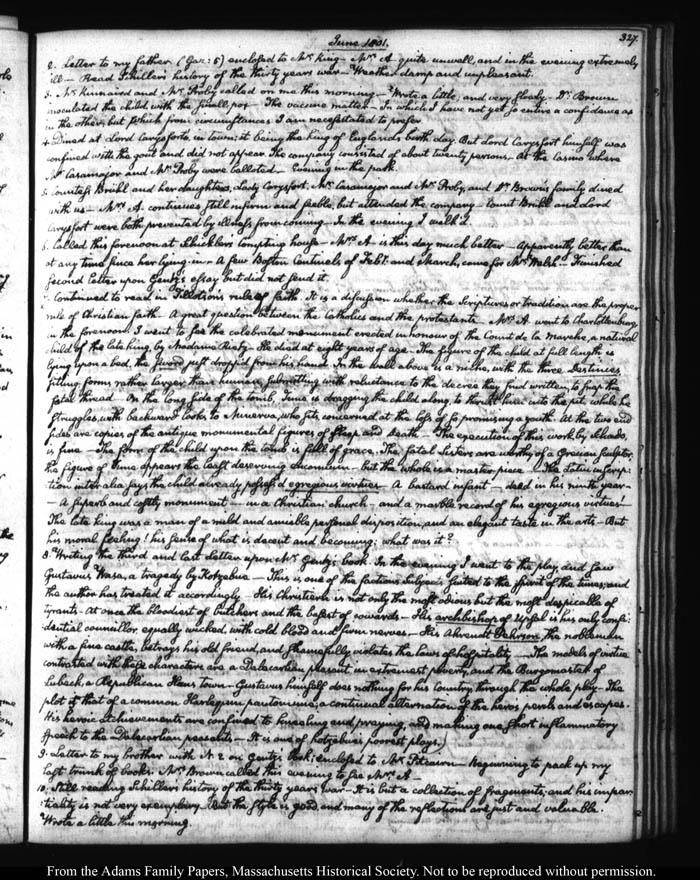 June 1801.
327.
2. Letter to my father (Gar: 5) enclosed to Mr King. Mrs A. quite unwell, and in the evening extremely
ill — Read Schiller's history of the thirty years war — Weather damp and unpleasant.
3. Mr Kinnaird and Mr Proby called on me this morning — Wrote a little, and very slowly. Dr Brown
inoculated the child with the small pox — The vaccine matter — In which I have not yet so entire a confidence as
in the other, but which from circumstances I am necessitated to prefer.
4. Dined at Lord Carysfort's, in town; it being the king of England's birth day. But Lord Carysfort himself was
confined with the gout and did not appear. The company consisted of about twenty persons — At the Casino where
Mr Casamajor and Mr Proby were balloted — Evening in the park.
5. Countess Brühl and her daughters, Lady Carysfort, Mr Casamajor and Mr Proby, and Dr Brown's family dined
with us — Mrs A. continues still infirm and feeble, but attended the company — Count Brühl and Lord
Carysfort were both prevented by illness from coming — In the evening I walk'd.
6. Called this forenoon at Schickler's Compting house — Mrs A. is this day much better — apparently better than
at any time since her lying-in — A few Boston Centinels of Feby: and March, came for Mr Welsh — Finished
second letter upon Gentz's essay but did not send it.
7. Continued to read in Tillotson's rule of faith. It is a discussion whether the Scriptures or tradition are the proper
rule of Christian faith — A great question between the Catholics and the protestants. Mrs A. went to Charlottenburg
in the forenoon. I went to see the celebrated monument erected in honour of the Count de la Marche, a natural
child of the late king, by Madame Rietz. He died at eight years of age. The figure of the child at full length is
lying upon a bed, the sword just dropp'd from his hand. In the wall above is a niche, with the three Destinies
sitting, forms rather larger than human, submitting with reluctance to the decree they find written, to snap the
fatal thread. On the long side of the tomb, Time is dragging the child along, to thrust him into the pit, while he
struggles, with backward looks to Minerva, who sits concerned at the loss of so promising a youth. At the two end
sides are copies of the antique monumental figures of sleep and death — The execution of this work, by Schado,
is fine — The form of the child upon the tomb is full of grace. The fatal Sisters are worthy of a Grecian sculptor.
The figure of Time appears the least deserving encomium — but the whole is a master piece — The Latin inscrip-
tion inter alia says the child already possess'd egregious virtues — A bastard infant — dead in his ninth year —
— A superb and costly monument — in a Christian church — and a marble record of his egregious virtues!
The late king was a man of a mild and amiable personal disposition, and an elegant taste in the arts — But
his moral feeling! his sense of what is decent and becoming; what was it?
8. Writing the third and last letter upon Mr Gentz's book. In the evening I went to the play, and saw
Gustavus Wasa, a tragedy by Kotzebue — This is one of the factions subjects suited to the spirit of the times, and
the author has treated it accordingly — His Christiern is not only the most odious but the most despicable of
tyrants. At once the bloodiest of butchers and the basest of cowards — His archbishop of Upsal is his only confi-
dential councillor, equally wicked, with cold blood and firm nerves — His Ahrendt Pehrson, the nobleman
with a fine castle, betrays his old friend, and shamefully violates the laws of hospitality — The models of virtue
contrasted with these characters are a Dalecarlian peasant in extremest poverty, and the Burgomaster of
Lubeck, a Republican Hans town — Gustavus himself does nothing for his Country through the whole play — The
plot is that of a common Harlequin pantomime, a continual alternation of the hero's perils and escapes.
His heroic atchievements are confined to kneeling and praying, and making one short inflammatory
speech to the Dalecarlian peasants — It is one of Kotzebue's poorest plays.
9. Letter to my brother with N. 2 on Gentz's book, enclosed to Mr Pitcairn — Beginning to pack up my
last trunk of books. Mrs Brown called this evening to see Mrs A —
10. Still reading Schiller's history of the thirty years war — It is but a collection of fragments, and his impar-
tiality is not very exemplary — But the style is good and many of the reflections are just and valuable.
Wrote a little this morning.
From the Adams Family Papers, Massachusetts Historical Society. Not to be reproduced without permission.